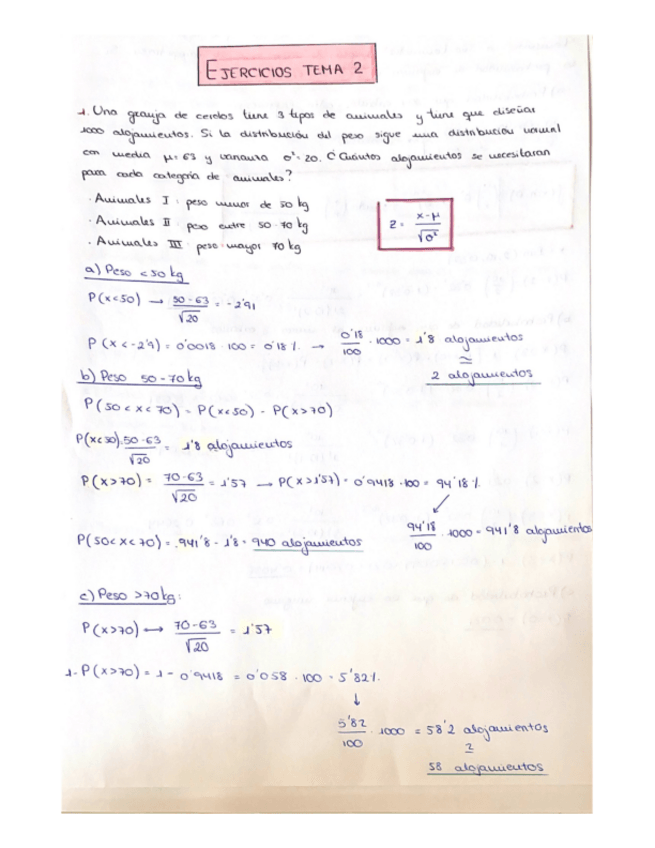 EJERCICIOS TEMA 2
1. Una granja de cerdos tiene 3 tipos de animales y tiene que diseñar
1000 alojamientos. Si la distribución del peso sigue una distribución normal
con media μ=63 y varianza σ²=20. ¿Cuántos alojamientos se necesitaran
para cada categoría de animales?
· Animales I : peso menor de 50 kg
· Animales II : peso entre 50-70 kg
· Animales III : peso mayor 70 kg
z = x-μ / √σ²
a) Peso <50 kg
P(x<50) → 50-63 / √20 = -2'91
P(x<-2'9) = 0'0018 · 100 = 0'18 % → 0'18 / 100 · 1000 = 1'8 alojamientos
≃
2 alojamientos
b) Peso 50-70 kg
P(50<x<70) = P(x<50) - P(x>70)
P(x<50) = 50-63 / √20 = 1'8 alojamientos
P(x>70) = 70-63 / √20 = 1'57 → P(x>1'57) = 0'9418 · 100 = 94'18 %
94'18 / 100 · 1000 = 941'8 alojamientos
P(50<x<70) = 941'8 - 1'8 = 940 alojamientos
c) Peso >70 kg:
P(x>70) → 70-63 / √20 = 1'57
1 - P(x>70) = 1 - 0'9418 = 0'058 · 100 = 5'82 %
↓
5'82 / 100 · 1000 = 58'2 alojamientos
≃
58 alojamientos